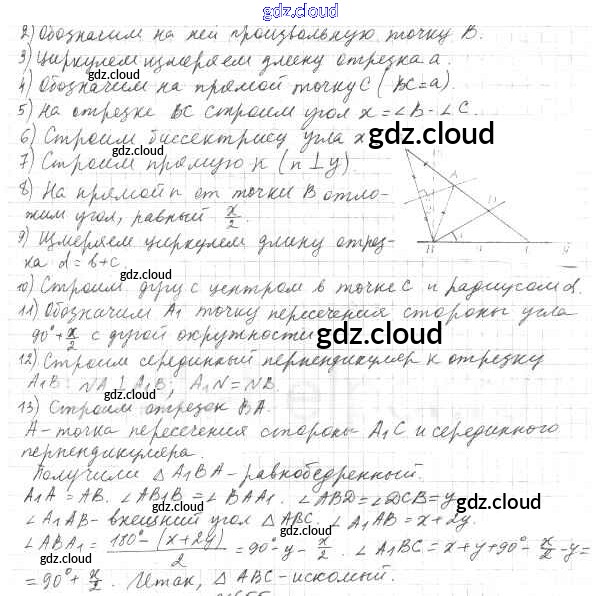 gdz.cloud
gdz.cloud
2) Обозначим на ней произвольную точку B.
3) Циркулем измеряем длину отрезка a.
4) Обозначим на прямой точку C (BC=a).
5) На отрезке BC строим угол x=∠B-∠C.
gdz.cloud
6) Строим биссектрису угла x
gdz.cloud
7) Строим прямую n (n⊥y).
8) На прямой n от точки B отло-
gdz.cloud
жим угол, равный x/2.
A
D
B
9) Измеряем циркулем длину отрез-
ка d=b+c.
gdz.cloud
10) Строим дугу с центром в точке C и радиусом d.
11) Обозначим A1 точку пересечения стороны угла
90°+x/2 с дугой окружности
gdz.cloud
12) Строим серединный перпендикуляр к отрезку
A1B: NA⊥A1B; A1N=NB.
gdz.cloud
gdz.cloud
13) Строим отрезок BA.
A-точка пересечения стороны A1C и серединного
перпендикуляра.
gdz.cloud
Получили △A1BA-равнобедренный.
A1A=AB. ∠AB1B=∠BAA1. ∠ABD=∠DCB=y
gdz.cloud
∠A1AB-внешний угол △ABC. ∠A1AB=x+2y.
gdz.cloud
∠ABA1=(180°-(x+2y))/2=90°-y-x/2. ∠A1BC=x+y+90°-x/2-y=
gdz.cloud
=90°+x/2. Итак, △ABC-искомый.
gdz.cloud